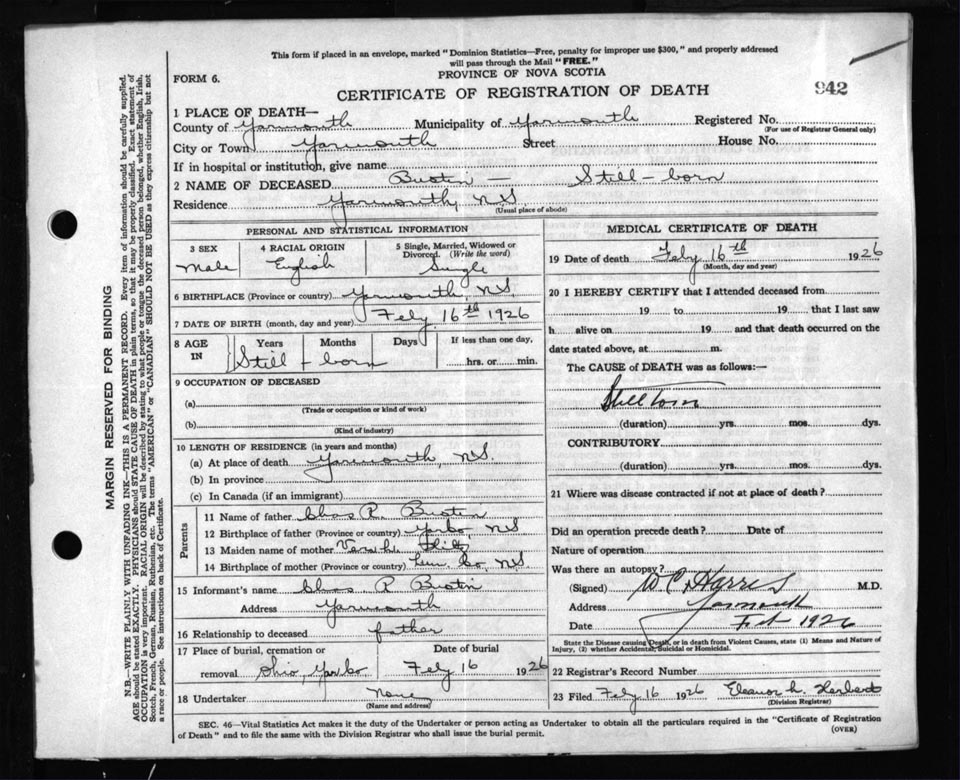 This form if placed in an envelope, marked "Dominion Statistics—Free, penalty for improper use $300," and properly addressed
will pass through the Mail "FREE."
PROVINCE OF NOVA SCOTIA
FORM 6.
942
CERTIFICATE OF REGISTRATION OF DEATH
1 PLACE OF DEATH—
County of Yarmouth Municipality of Yarmouth Registered No.
(For use of Registrar General only)
City or Town Yarmouth Street House No.
If in hospital or institution, give name
2 NAME OF DECEASED Bustin — Still-born
Residence Yarmouth, N.S.
(Usual place of abode)
PERSONAL AND STATISTICAL INFORMATION
3 SEX 4 RACIAL ORIGIN 5 Single, Married, Widowed or
Divorced. (Write the word)
Male English Single
6 BIRTHPLACE (Province or country) Yarmouth, N.S.
7 DATE OF BIRTH (month, day and year) Feby 16th 1926
8 AGE IN Years Months Days If less than one day,
Still - born hrs. or min.
9 OCCUPATION OF DECEASED
(a)
(Trade or occupation or kind of work)
(b)
(Kind of industry)
10 LENGTH OF RESIDENCE (in years and months)
(a) At place of death Yarmouth, N.S.
(b) In province
(c) In Canada (if an immigrant)
Parents
11 Name of father Chas P. Bustin
12 Birthplace of father (Province or country) Yar Co N S
13 Maiden name of mother
14 Birthplace of mother (Province or country) Lun. Co, N S
15 Informant's name Chas P Bustin
Address Yarmouth
16 Relationship to deceased father
17 Place of burial, cremation or Date of burial
removal Ohio, Yar Co Feby 16 1926
18 Undertaker None
(Name and address)
MEDICAL CERTIFICATE OF DEATH
19 Date of death Feby 16th 1926
(Month, day and year)
20 I HEREBY CERTIFY that I attended deceased from
19 to 19 that I last saw
h alive on 19 and that death occurred on the
date stated above, at m.
The CAUSE of DEATH was as follows:—
Stillborn
(duration) yrs. mos. dys.
CONTRIBUTORY
(duration) yrs. mos. dys.
21 Where was disease contracted if not at place of death?
Did an operation precede death? Date of
Nature of operation
Was there an autopsy?
(Signed) W C Harris M.D.
Address Yarmouth
Date Feb 1926
State the Disease causing Death, or in death from Violent Causes, state (1) Means and Nature of
Injury, (2) whether Accidental, Suicidal or Homicidal.
22 Registrar's Record Number
23 Filed Feby 16 1926 Eleanor L. Herbert
(Division Registrar)
SEC. 46—Vital Statistics Act makes it the duty of the Undertaker or person acting as Undertaker to obtain all the particulars required in the "Certificate of Registration
of Death" and to file the same with the Division Registrar who shall issue the burial permit.
(OVER)
MARGIN RESERVED FOR BINDING
N.B.—WRITE PLAINLY WITH UNFADING INK—THIS IS A PERMANENT RECORD. Every item of information should be carefully supplied.
AGE should be stated EXACTLY. PHYSICIANS should STATE CAUSE OF DEATH in plain terms, so that it may be properly classified. Exact statement of
OCCUPATION is very important. RACIAL ORIGIN will be described by stating to what people or tongue the deceased person belonged, whether English, Irish,
Scotch, French, German, Russian, Ruthenian, etc. The terms "AMERICAN" or "CANADIAN" SHOULD NOT BE USED as they express citizenship but not
a race or people. See instructions on back of Certificate.